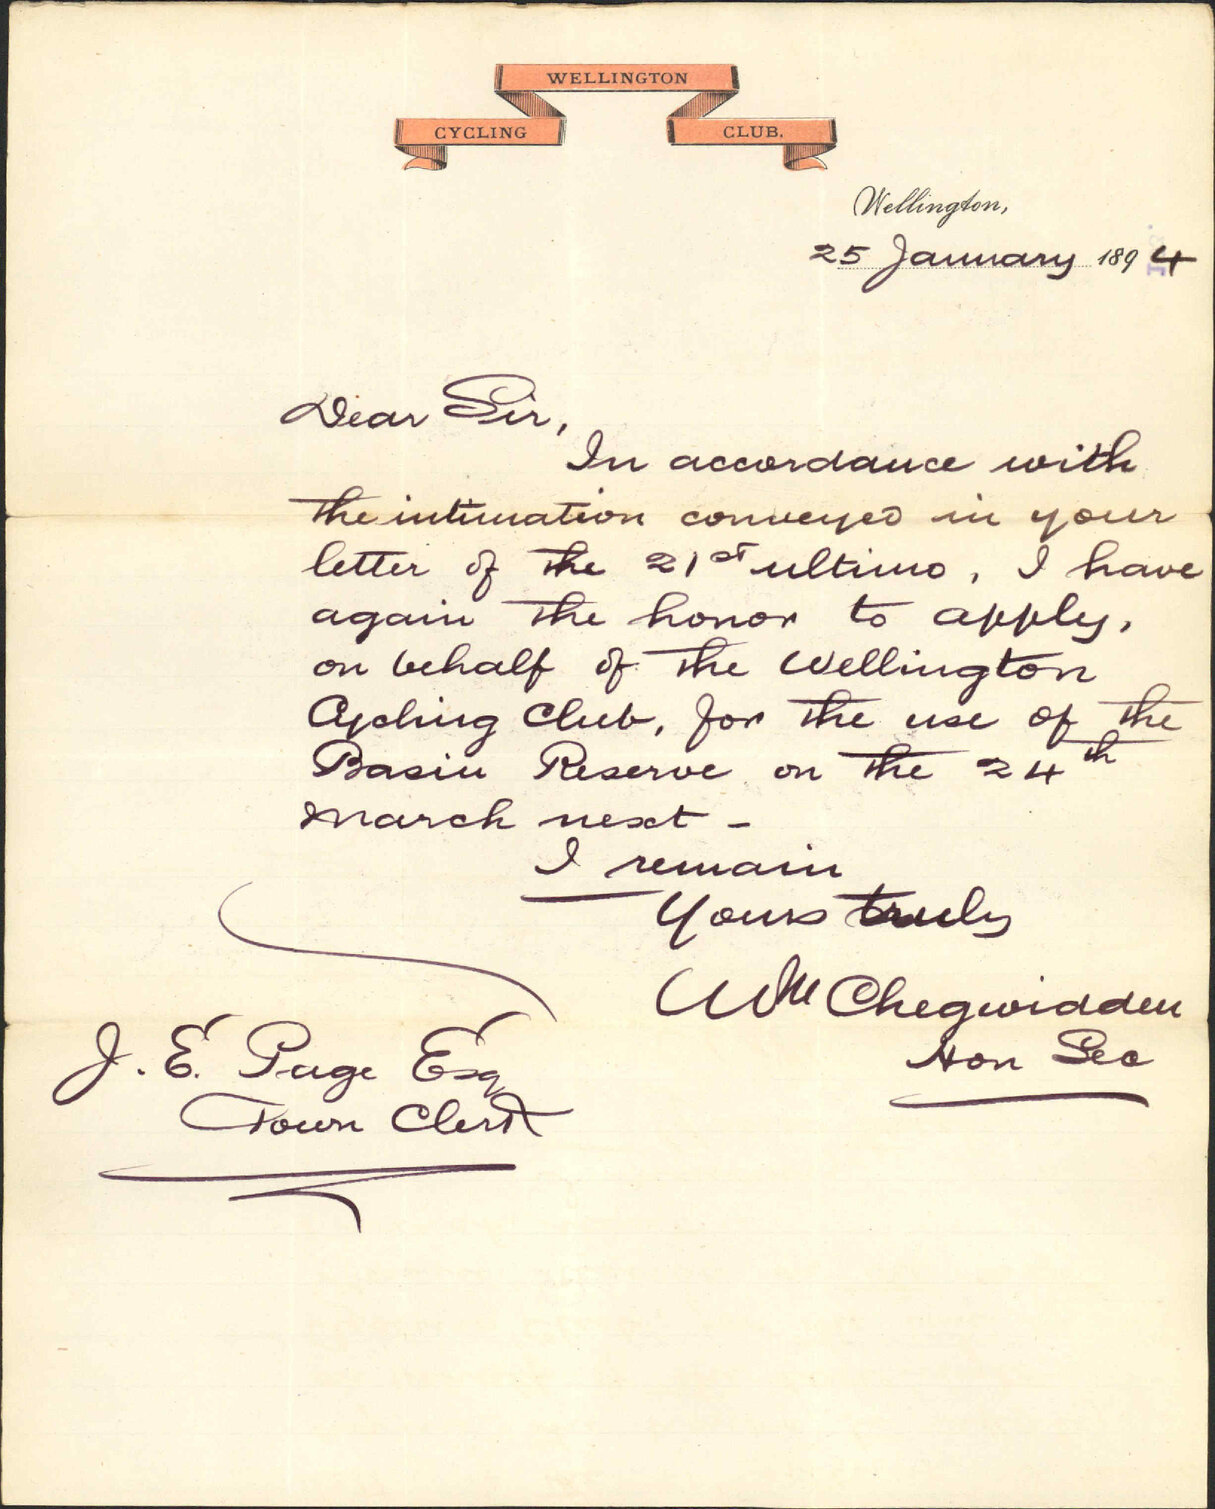 WELLINGTON
CYCLING CLUB.
Wellington,
25 January 1894
Dear Sir,
In accordance with
the intimation conveyed in your
letter of the 21st ultimo, I have
again the honor to apply,
on behalf of the Wellington
Cycling Club, for the use of the
Basin Reserve on the 24th
March next -
I remain
Yours truly
Wm Chegwidden
Hon Sec
J. E. Page Esq
Town Clerk